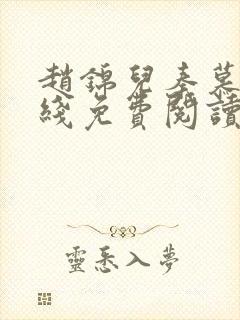 趙錦兒秦慕
綫免費閱讀
靈悉入夢